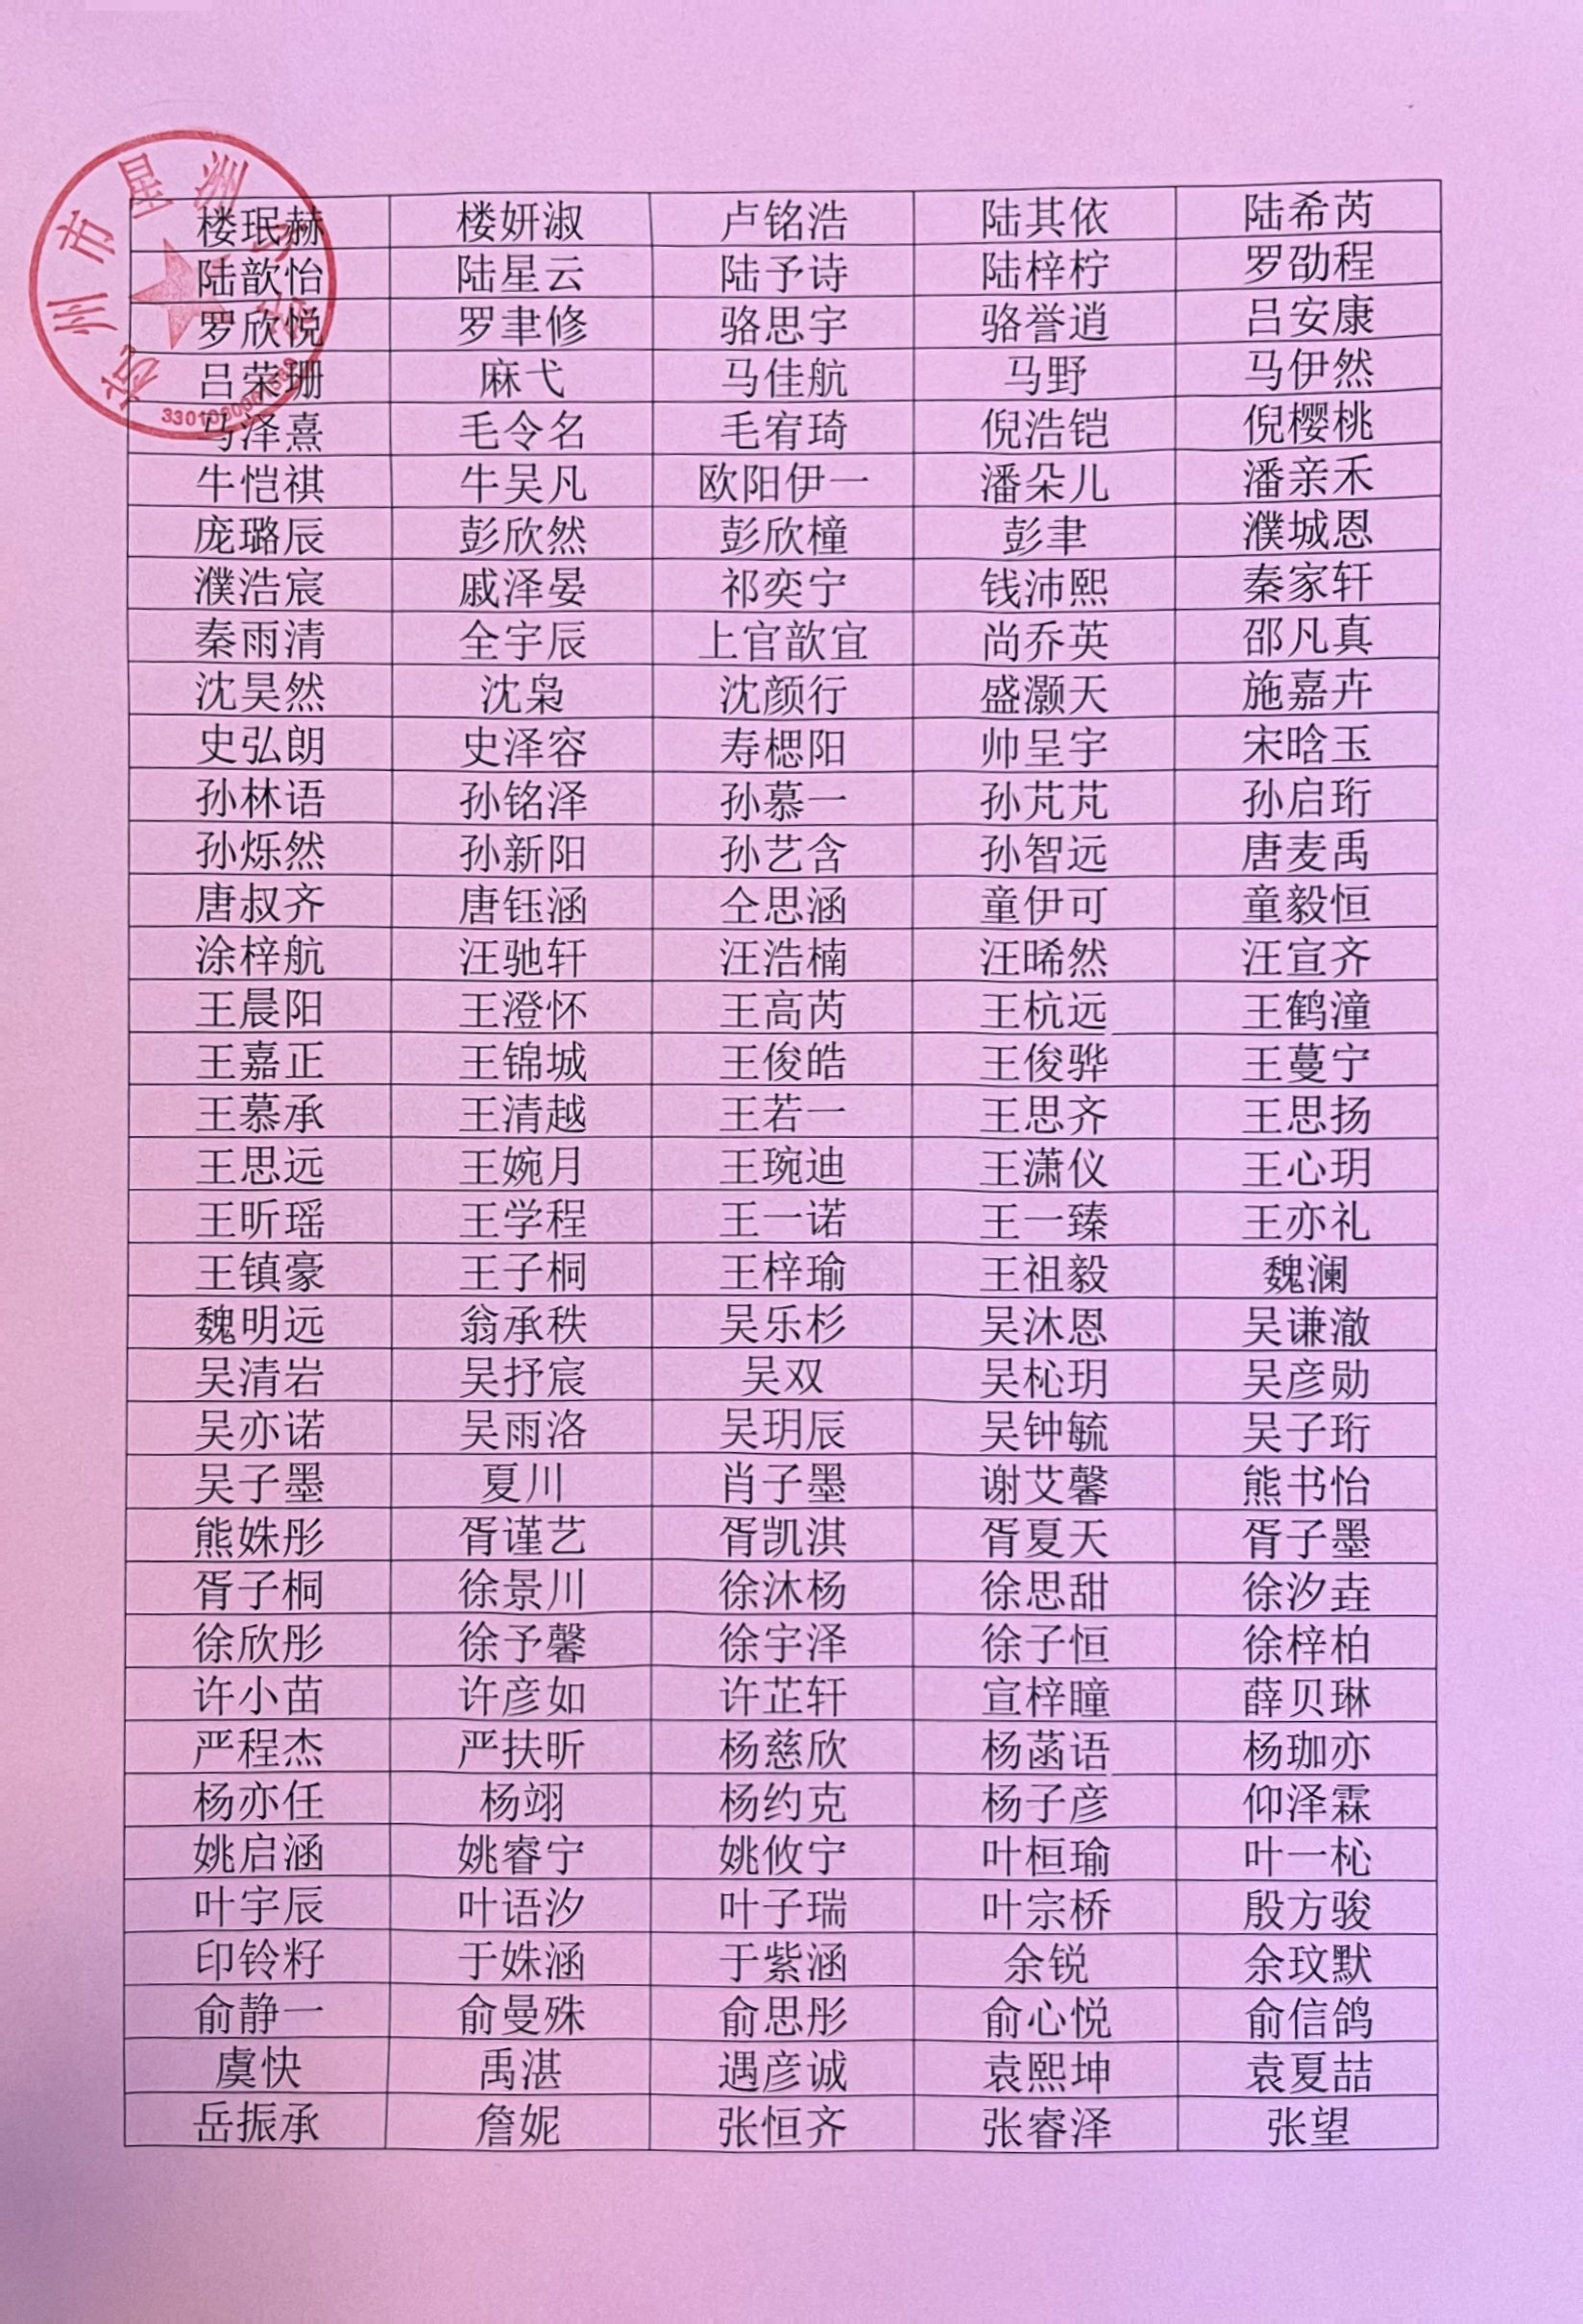 杭州市星洲小学
楼珉赫 楼妍淑 卢铭浩 陆其依 陆希芮
陆歆怡 陆星云 陆予诗 陆梓柠 罗劭程
罗欣悦 罗聿修 骆思宇 骆誉逍 吕安康
吕荣珊 麻弋 马佳航 马野 马伊然
马泽熹 毛令名 毛宥琦 倪浩铠 倪樱桃
牛恺祺 牛吴凡 欧阳伊一 潘朵儿 潘亲禾
庞璐辰 彭欣然 彭欣橦 彭聿 濮城恩
濮浩宸 戚泽晏 祁奕宁 钱沛熙 秦家轩
秦雨清 全宇辰 上官歆宜 尚乔英 邵凡真
沈昊然 沈枭 沈颜行 盛灏天 施嘉卉
史弘朗 史泽容 寿楒阳 帅呈宇 宋晗玉
孙林语 孙铭泽 孙慕一 孙芃芃 孙启珩
孙烁然 孙新阳 孙艺含 孙智远 唐麦禹
唐叔齐 唐钰涵 仝思涵 童伊可 童毅恒
涂梓航 汪驰轩 汪浩楠 汪晞然 汪宣齐
王晨阳 王澄怀 王高芮 王杭远 王鹤潼
王嘉正 王锦城 王俊皓 王俊骅 王蔓宁
王慕承 王清越 王若一 王思齐 王思扬
王思远 王婉月 王琬迪 王潇仪 王心玥
王昕瑶 王学程 王一诺 王一臻 王亦礼
王镇豪 王子桐 王梓瑜 王祖毅 魏澜
魏明远 翁承秩 吴乐杉 吴沐恩 吴谦澈
吴清岩 吴抒宸 吴双 吴杺玥 吴彦勋
吴亦诺 吴雨洛 吴玥辰 吴钟毓 吴子珩
吴子墨 夏川 肖子墨 谢艾馨 熊书怡
熊姝彤 胥谨艺 胥凯淇 胥夏天 胥子墨
胥子桐 徐景川 徐沐杨 徐思甜 徐汐垚
徐欣彤 徐予馨 徐宇泽 徐子恒 徐梓柏
许小苗 许彦如 许芷轩 宣梓瞳 薛贝琳
严程杰 严扶昕 杨慈欣 杨菡语 杨珈亦
杨亦任 杨翊 杨约克 杨子彦 仰泽霖
姚启涵 姚睿宁 姚攸宁 叶桓瑜 叶一杺
叶宇辰 叶语汐 叶子瑞 叶宗桥 殷方骏
印铃籽 于姝涵 于紫涵 余锐 余玟默
俞静一 俞曼殊 俞思彤 俞心悦 俞信鸽
虞快 禹湛 遇彦诚 袁熙坤 袁夏喆
岳振承 詹妮 张恒齐 张睿泽 张望